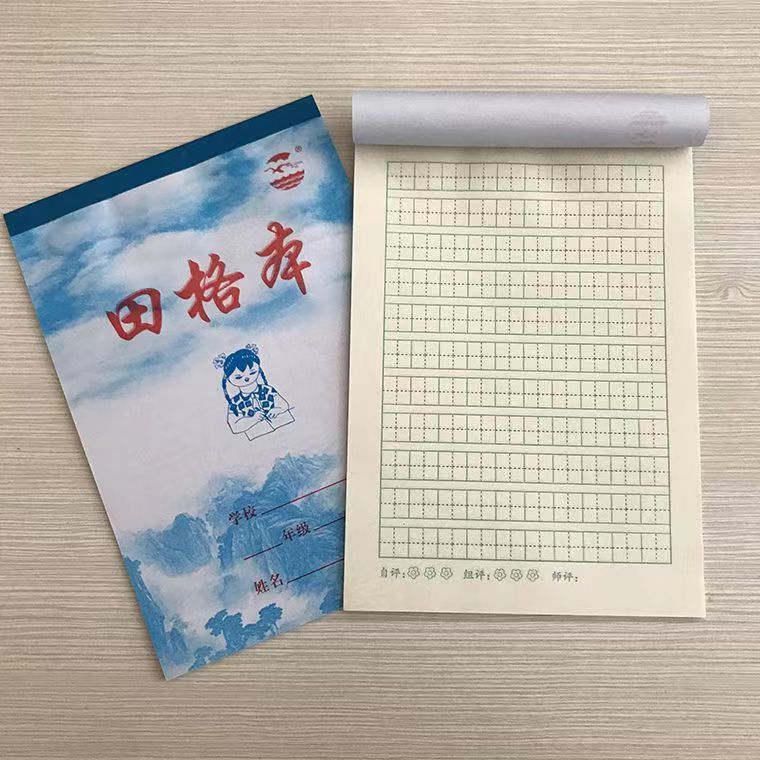 ®
田格本
学校
年级
姓名
自评: 组评: 师评: